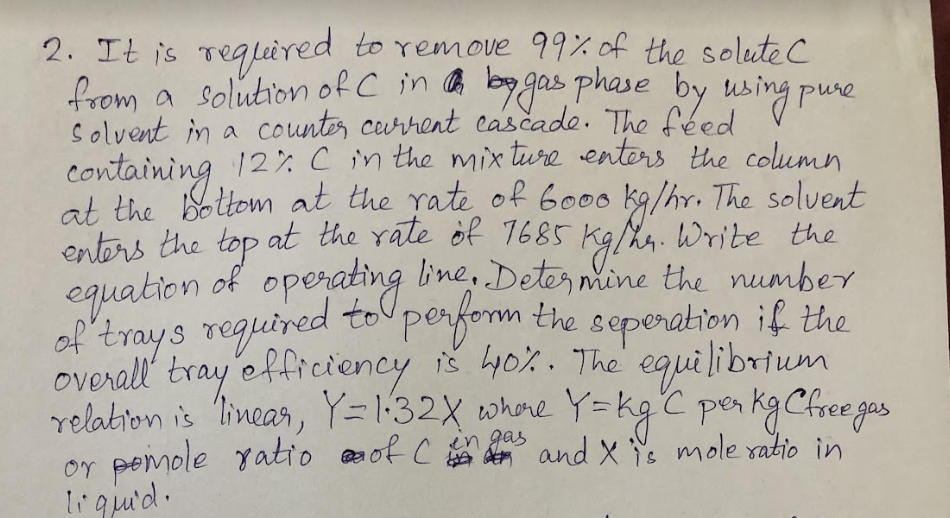 2. It is required to remove 99% of the solute C
from a solution of C in gas phase by using pure
Solvent in a counter current cascade. The feed
containing 12% C in the mixture enters the column
at the bottom at the rate of 6000 kg/hr. The solvent
enters the top at the rate of 7685 kg/hr. Write the
equation of operating line. Determine the number
of trays required to perform the seperation if the
overall tray efficiency is 40%. The equilibrium
relation is linear, Y=1.32X where Y=kg C per kg C free gas
or mole ratio of C in gas and X is mole ratio in
liquid.